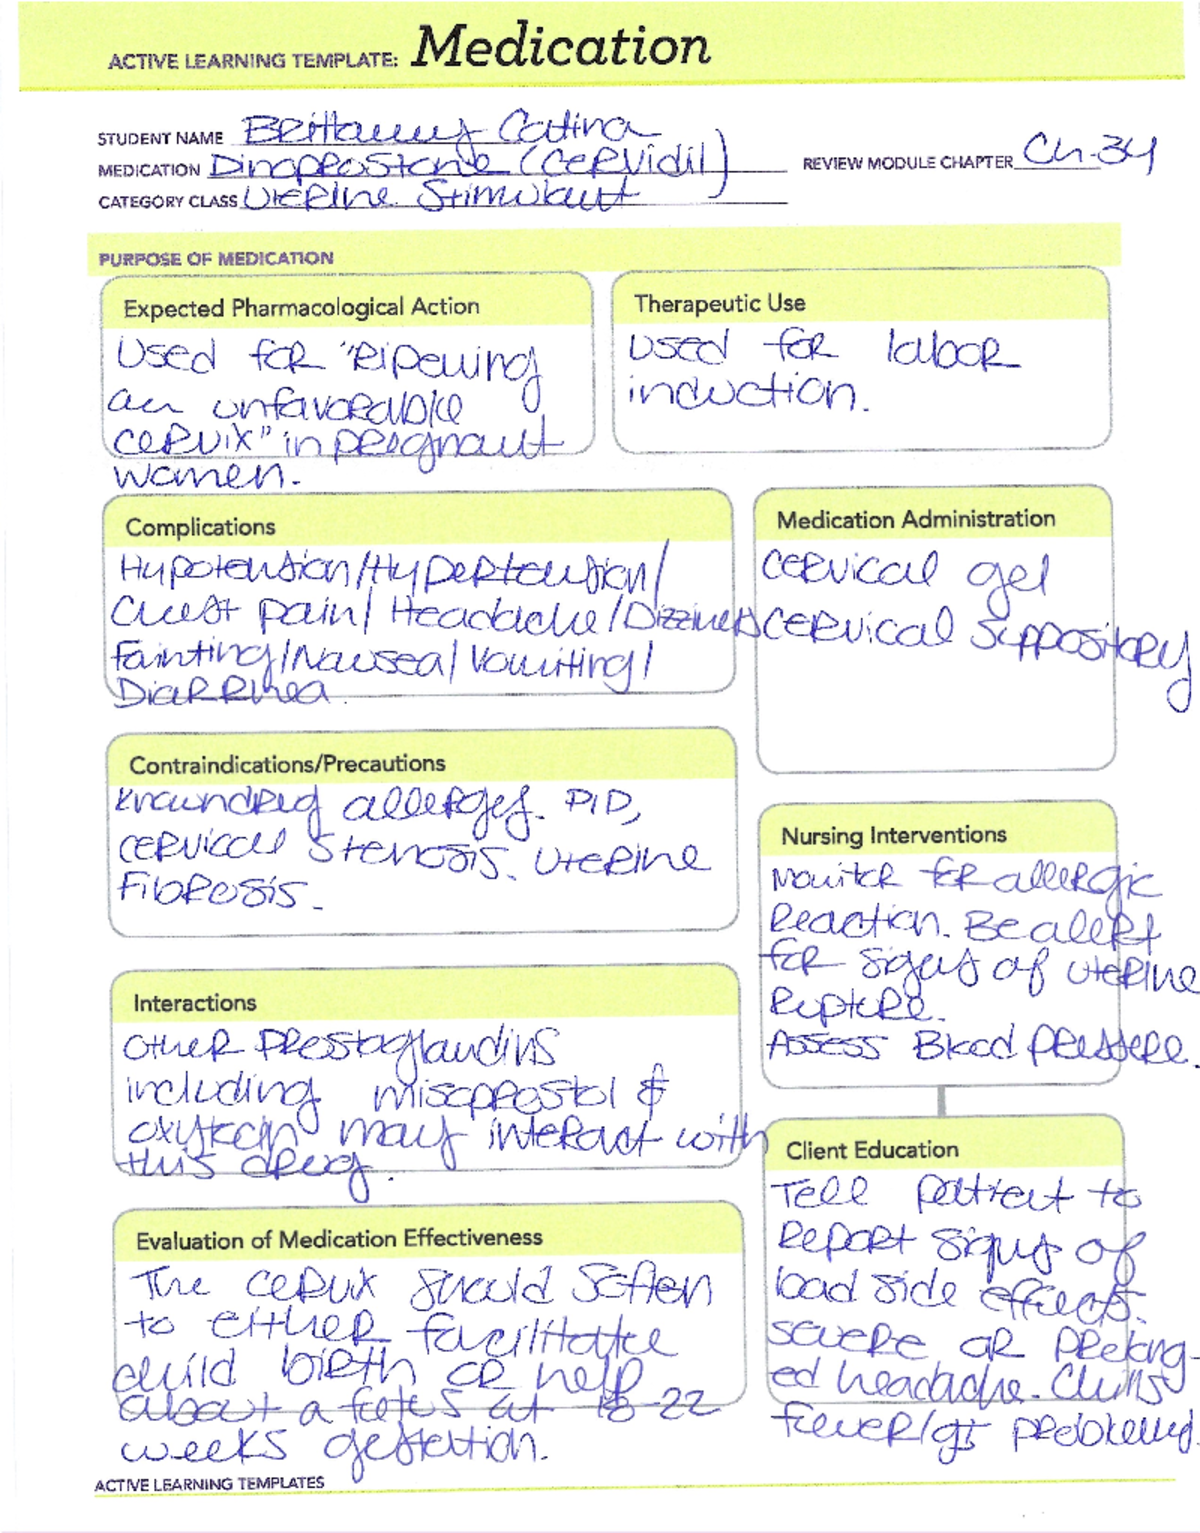 ACTIVE LEARNING TEMPLATE: Medication
STUDENT NAME Brittanny Catina
MEDICATION Dinoprostone (Cervidil)
REVIEW MODULE CHAPTER Ch. 34
CATEGORY CLASS Uterine Stimulant
PURPOSE OF MEDICATION
Expected Pharmacological Action
Used for "Ripening
an unfavorable
cervix" in pregnant
women.
Therapeutic Use
Used for labor
induction.
Complications
Hypotension/Hypertension/
Chest pain/Headache/Dizziness
Fainting/Nausea/Vomiting/
Diarrhea.
Medication Administration
Cervical gel
Cervical suppository
Contraindications/Precautions
Known drug allergy. PID,
cervical stenosis. Uterine
Fibrosis.
Nursing Interventions
Monitor for allergic
Reaction. Be alert
for signs of uterine
Rupture.
Assess Blood pressure.
Interactions
Other prostaglandins
including misoprostol &
oxytocin may interact with
this drug.
Client Education
Tell patient to
Report signs of
bad side effects.
severe or prolong-
ed headache. Chills
fever/gi problems.
Evaluation of Medication Effectiveness
The cervix should soften
to either facilitate
child birth or help
about a fetus at 18-22
weeks gestation.
ACTIVE LEARNING TEMPLATES